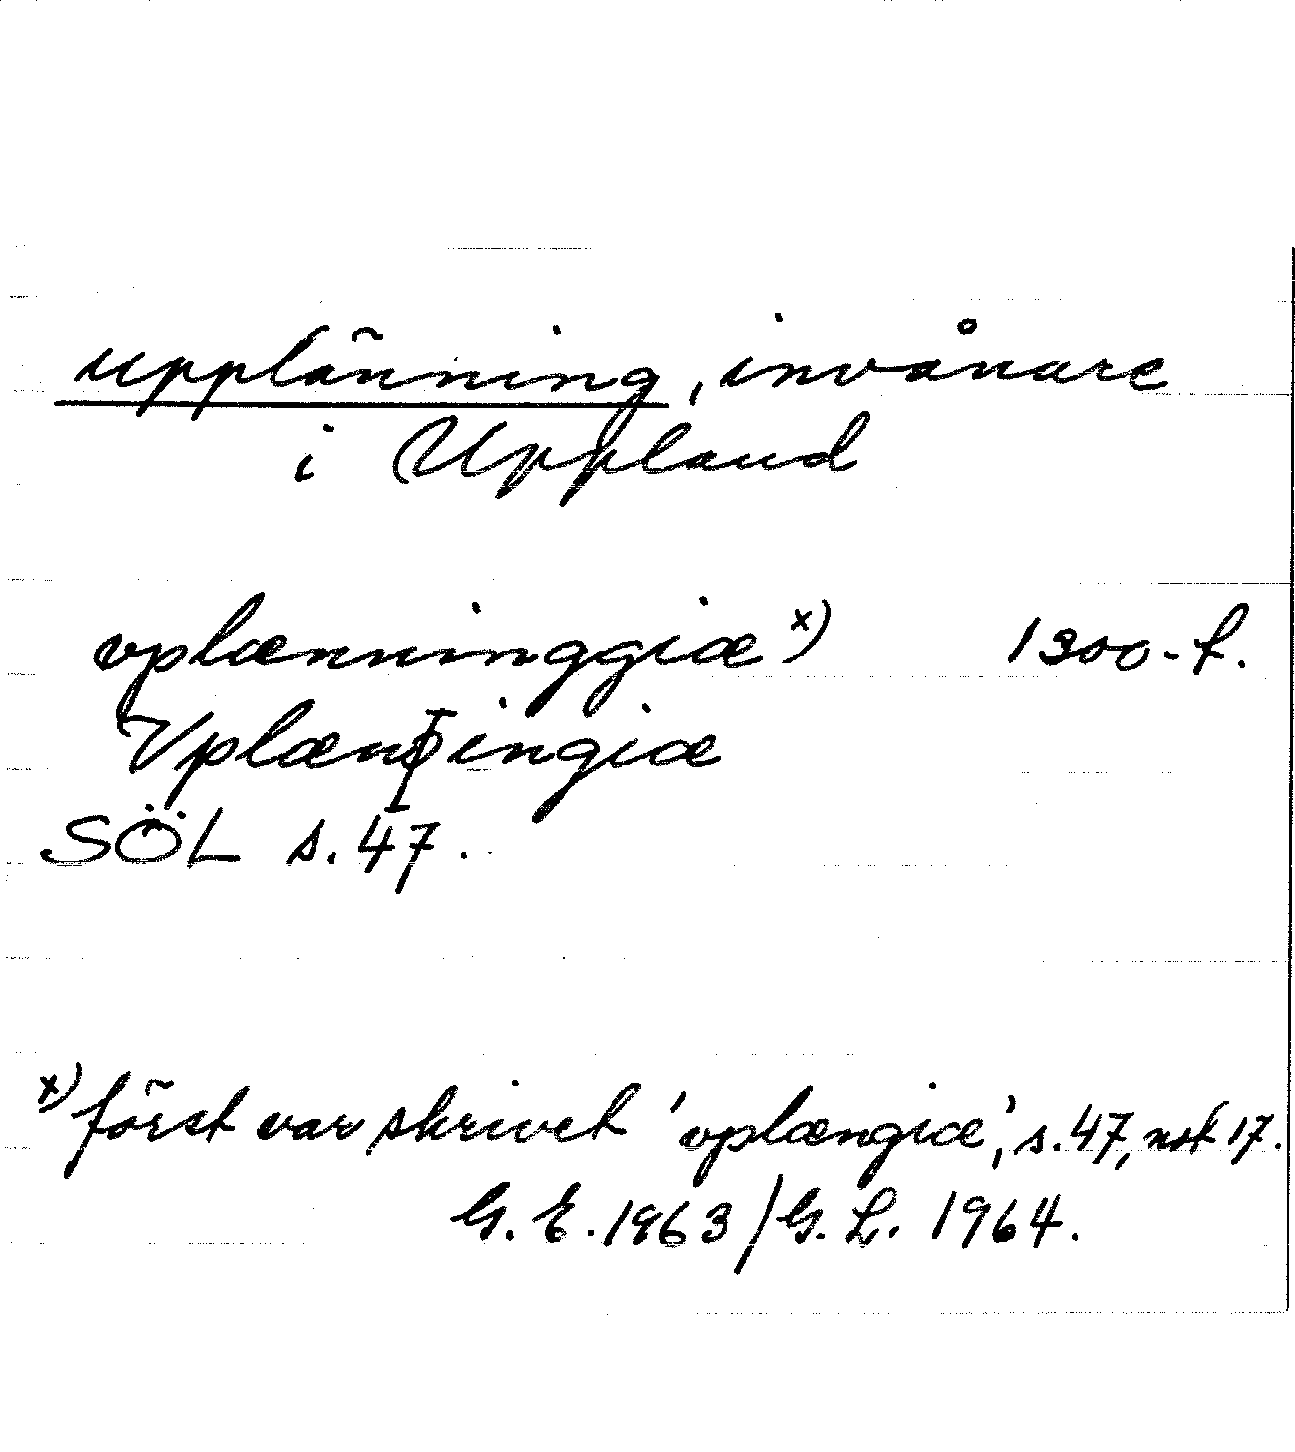 upplänning, invånare
i Uppland
vplænninggiæ x) 1300-t.
Vplænþingiæ
SÖL s. 47.
x) först var skrivet 'vplængiæ', s. 47, not 17.
G. E. 1963/G. L. 1964.